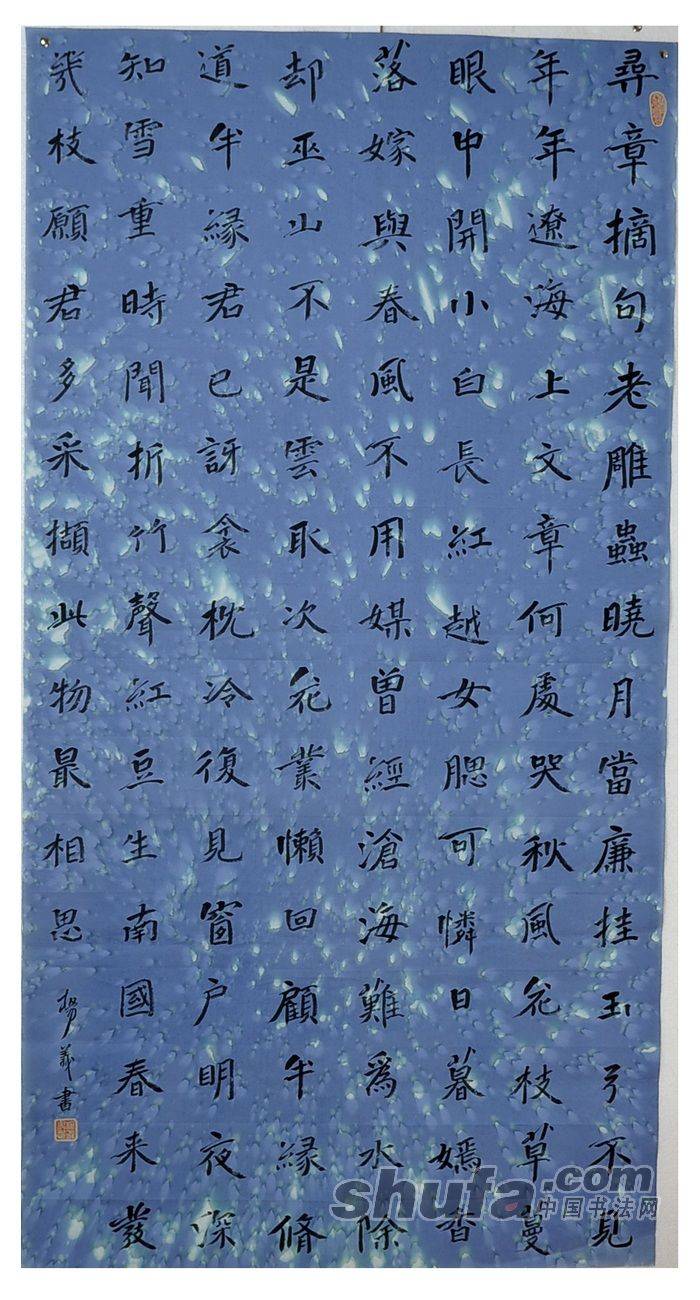 尋章摘句老雕蟲曉月當廉挂玉弓不見
年年遼海上文章何處哭秋風花枝草蔓
眼中開小白長紅越女腮可憐日暮嫣香
落嫁與春風不用媒曾經滄海難爲水除
却巫山不是雲取次花叢懶回顧半緣脩
道半緣君已訝衾枕冷復見窗户明夜深
知雪重時聞折竹聲紅豆生南國春来發
幾枝願君多采擷此物最相思
楊義書
shufa.com
中国书法网